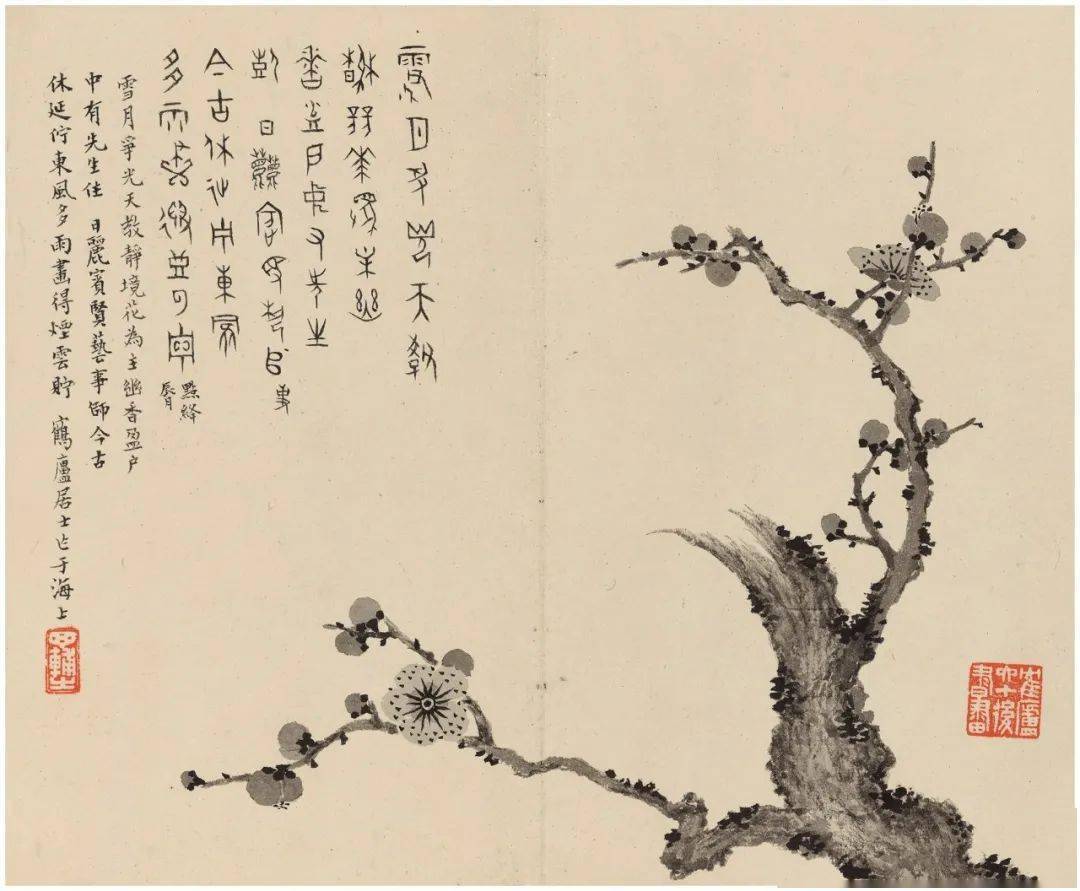 雪月爭光天教
靜境花為主幽
香盈戶中有先生
住 日麗賓賢藝師
事
今古休延佇東風
多雨畫得煙雲貯
點絳
脣
雪月爭光天教靜境花為主幽香盈户
中有先生住 日麗賓賢藝事師今古
休延佇東風多雨畫得煙雲貯 鶴廬居士乍于海上